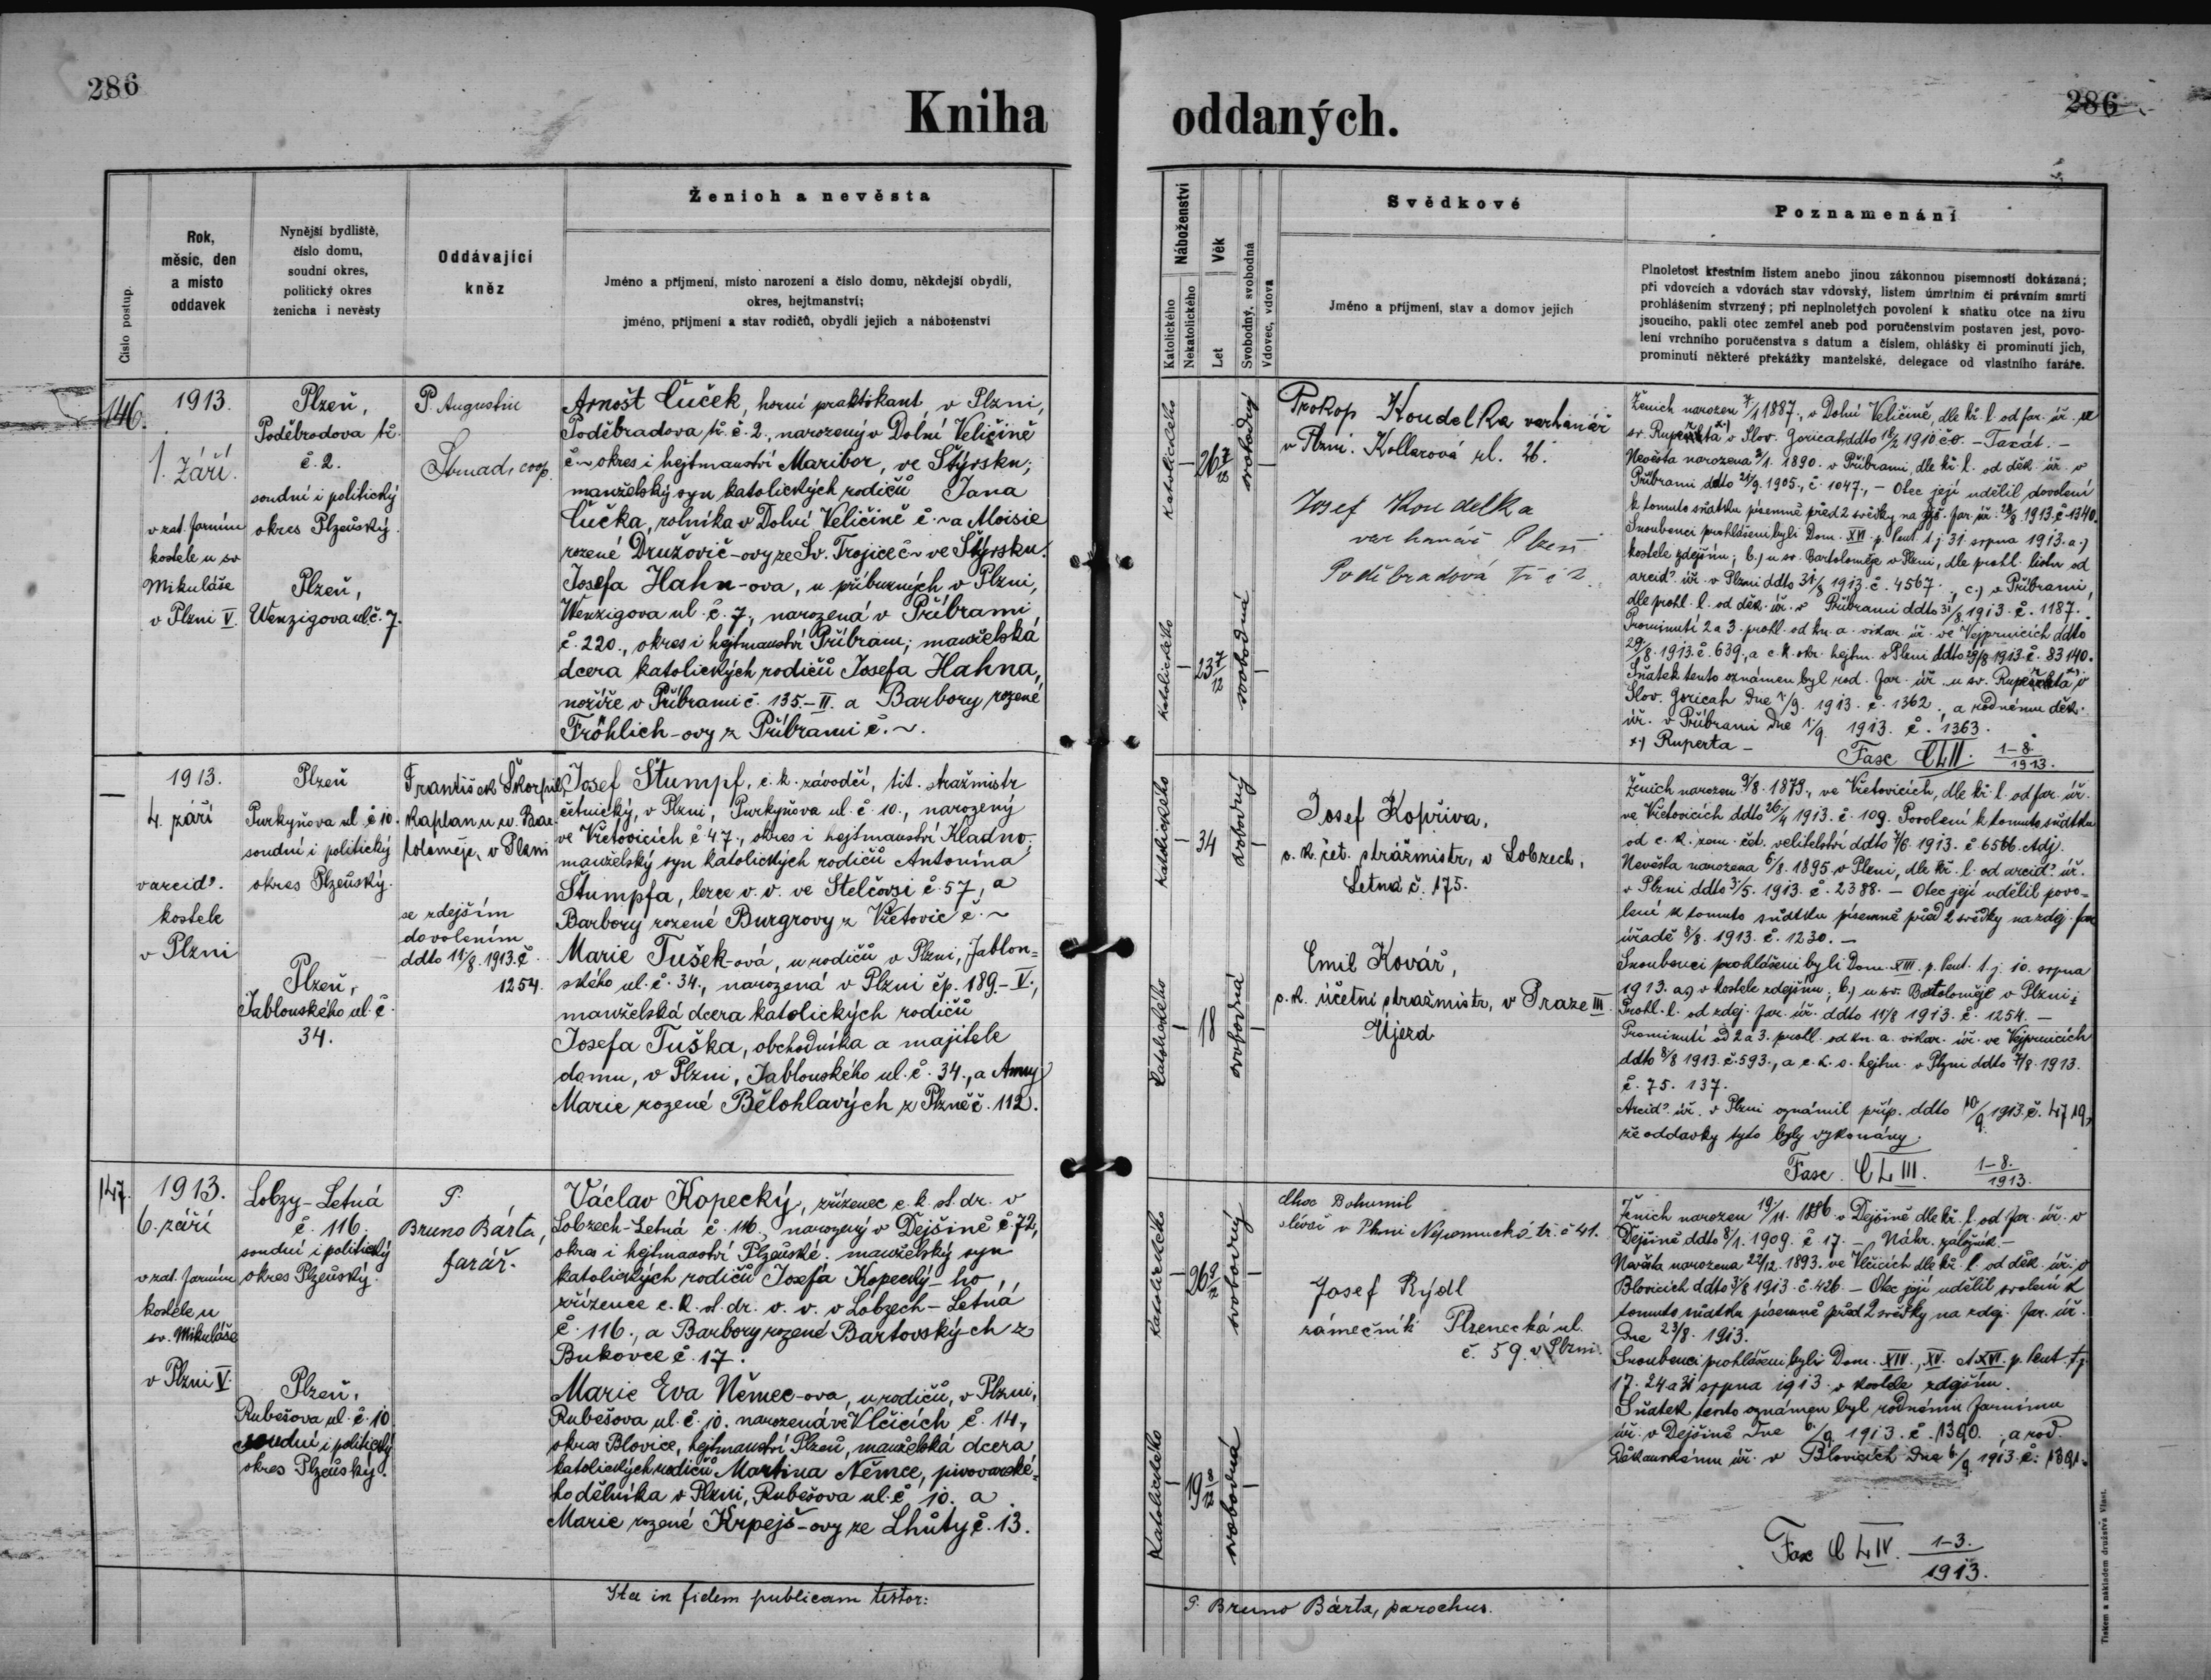 286
286
Kniha oddaných.
Číslo postup.
Rok,
měsíc, den
a místo
oddavek
Nynější bydliště,
číslo domu,
soudní okres,
politický okres
ženicha i nevěsty
Oddávající
kněz
Ženich a nevěsta
Jméno a příjmení, místo narození a číslo domu, někdejší obydlí,
okres, hejtmanství;
jméno, příjmení a stav rodičů, obydlí jejich a náboženství
Náboženství
Katolického
Nekatolického
Věk
Let
Svobodný, svobodná
Vdovec, vdova
Svědkové
Jméno a příjmení, stav a domov jejich
Poznamenání
Plnoletost křestním listem anebo jinou zákonnou písemností dokázaná;
při vdovcích a vdovách stav vdovský, listem úmrtním či právním smrti
prohlášením stvrzený; při neplnoletých povolení k sňatku otce na živu
jsoucího, pakli otec zemřel aneb pod poručenstvím postaven jest, povo-
lení vrchního poručenstva s datum a číslem, ohlášky či prominutí jich,
prominutí některé překážky manželské, delegace od vlastního faráře.
146.
1913.
1. září
v zat. farním
kostele u sv
Mikuláše
v Plzni V.
Plzeň,
Poděbradova tř.
č. 2.
soudní i politický
okres Plzeňský.
Plzeň,
Wenzigova ul. č. 7.
P. Augustin
Strnad, coop.
Arnošt Čuček, horní praktikant, v Plzni,
Poděbradova tř. č. 2., narozený v Dolní Veličině
č ~ okres i hejtmanství Maribor, ve Štýrsku;
manželský syn katolických rodičů Jana
Čučka, rolníka v Dolní Veličině č. ~ a Aloisie
rozené Družovič-ovy ze Sv. Trojice č ~ ve Štýrsku.
Josefa Hahn-ova, u příbuzných v Plzni,
Wenzigova ul. č. 7., narozená v Příbrami
č. 220., okres i hejtmanství Příbram; manželská
dcera katolických rodičů Josefa Hahna,
nožíře v Příbrami č. 135.-II. a Barbory rozené
Fröhlich-ovy z Příbrami č. ~.
Katolického
26 7/12
svobodný
Katolického
23 7/12
svobodná
Prokop Koudelka verhanář
v Plzni. Kollarová ul. 26.
Josef Koudelka
verhanář Plzeň
Poděbradová Tř č 2.
Ženich narozen 7/1 1887., v Dolní Veličině, dle kř. l. od far. úř. u
sv. Ruperkta x) v Slov. Goricah ddto 18/2 1910 č 0. -
Nevěsta narozena 2/1. 1890. v Příbrami, dle kř. l. od děk. úř. v
Příbrami ddto 21/9. 1905., č. 1047., - Otec její udělil dovolení
k tomuto sňatku písemně před 2 svědky na zdej. far. úř. 28/8 1913. č 1340.
Snoubenci prohlášeni byli Dom. XVI. p. Pent. t. j. 31. srpna 1913. a.)
kostele zdejším; b.) u sv. Bartoloměje v Plzni, dle prohl. listu od
arcid. úř. v Plzni ddto 31/8 1913. č. 4567., c.) v Příbrami,
dle prohl. l. od děk. úř. v Příbrami ddto 31/8. 1913. č. 1187.
Prominutí 2 a 3. prohl. od kn. a. vikar. úř. ve Vejprnicích ddto
29/8. 1913. č. 639., a c. k. okr. hejtm. v Plzni ddto 29/8 1913. č. 83140.
Sňatek tento oznámen byl rod. far. úř. u sv. Ruperkta x) v
Slov. Goricah dne 1/9. 1913. č. 1362., a rodnému děk.
úř. v Příbrami dne 1/9 1913. č. 1363.
x) Ruperta -
Fasc. CLII. 1-8. 1913.
1913.
4. září
v arcid.
kostele
v Plzni
Plzeň
Purkyňova ul č 10.
soudní i politický
okres Plzeňský.
Plzeň,
Jablonského ul. č.
34.
František Škorpil,
kaplan u sv. Bar-
toloměje, v Plzni
se zdejším
dovolením
ddto 11/8. 1913. č.
1254.
Josef Štumpf, c. k. závodčí, tit. stražmistr
četnický, v Plzni, Purkyňova ul. č. 10., narozený
ve Vřetovicích č 47., okres i hejtmanství Kladno;
manželský syn katolických rodičů Antonína
Štumpfa, lezce v. v. ve Stelčovsi č. 57, a
Barbory rozené Burgrovy z Vřetovic č. ~
Marie Tušek-ová, u rodičů v Plzni, Jablon-
ského ul. č. 34., narozená v Plzni čp. 189.-V.,
manželská dcera katolických rodičů
Josefa Tuška, obchodníka a majitele
domu, v Plzni, Jablonského ul. č. 34., a Anny
Marie rozené Bělohlavých z Plzně č. 112.
Katolického
34
svobodný
Katolického
18
svobodná
Josef Kopřiva,
c. k. čet. strážmistr, v Lobzech,
Letná č. 175.
Emil Kovář,
c. k. účetní stražmistr, v Praze III
Újezd
Ženich narozen 9/8. 1879., ve Vřetovicích, dle kř. l. od far. úř.
ve Vřetovicích ddto 26/4 1913. č. 109. Povolení k tomuto sňatku
od c. k. zem. čet. velitelství ddto 7/6. 1913. č 6566. Adj.
Nevěsta narozena 6/8. 1895 v Plzni, dle kř. l. od arcid. úř.
v Plzni ddto 3/5. 1913. č. 2388. - Otec její udělil povo-
lení k tomuto sňatku písemně před 2 svědky na zdej. far
úřadě 8/8. 1913. č. 1230. -
Snoubenci prohlášeni byli Dom. XIII. p. Pent. t. j. 10. srpna
1913. a.) v kostele zdejším; b.) u sv. Bartoloměje v Plzni;
Prohl. l. od zdej. far. úř. ddto 11/8 1913. č. 1254. -
Prominutí od 2 a 3. prohl. od kn. a. vikar. úř. ve Vejprnicích
ddto 8/8 1913. č. 593., a c. k. o. hejtm. v Plzni ddto 7/8. 1913.
č. 75. 137.
Arcid. úř. v Plzni oznámil příp. ddto 10/9 1913. č. 4719,
že oddavky tyto byly vykonány.
Fasc. CLIII. 1-8. 1913.
147.
1913.
6. září
v zat. farním
kostele u
sv. Mikuláše
v Plzni V.
Lobzy-Letná
č. 116.
soudní i politický
okres Plzeňský.
Plzeň,
Rubešova ul. č. 10.
soudní i politický
okres Plzeňský.
P.
Bruno Bárta,
farář.
Václav Kopecký, zřízenec c. k. st. dr. v
Lobzech-Letná č. 116., narozený v Dejšině č. 72,
okres i hejtmanství Plzeňské; manželský syn
katolických rodičů Josefa Kopecký-ho,
zřízence c. k. st. dr. v. v. v Lobzech-Letná
č. 116., a Barbory rozené Bartovských z
Bukovce č. 17.
Marie Eva Němec-ova, u rodičů, v Plzni,
Rubešova ul. č. 10. narozená ve Vlčicích č. 14,
okres Blovice, hejtmanství Plzeň, manželská dcera
katolických rodičů Martina Němce, pivovarské-
ho dělníka v Plzni, Rubešova ul. č 10. a
Marie rozené Krpejš-ovy ze Lhůty č. 13.
Katolického
26 9/12
svobodný
Katolického
19 8/12
svobodná
Bohumil
slévač v Plzni Nepomucká tř. č 41.
Josef Rýdl
zámečník Plzenecká ul.
č. 59. v Plzni.
Ženich narozen 19/11. 1886 v Dejšině dle kř. l. od far. úř. v
Dejšině ddto 8/1. 1909. č 17. - Náhr. záložník. -
Nevěsta narozena 22/12. 1893. ve Vlčicích dle kř. l. od děk. úř. v
Blovicích ddto 3/8 1913. č. 426. - Otec její udělil svolení k
tomuto sňatku písemně před 2 svědky na zdej. far. úř.
dne 23/8. 1913.
Snoubenci prohlášeni byli Dom. XIV., XV. a XVI. p. Pent. t. j.
17. 24 a 31 srpna 1913. v kostele zdejším.
Sňatek tento oznámen byl rodnému farnímu
úř. v Dejšině dne 6/9 1913. č. 1390., a rod.
děkanskému úř. v Blovicích dne 6/9 1913. č. 1391.
Fasc CLIV. 1-3. 1913.
Ita in fidem publicam testor:
P. Bruno Bárta, parochus.
Tiskem a nákladem družstva Vlast.